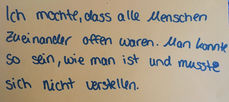 Ich möchte, dass alle Menschen
zueinander offen wären. Man könnte
so sein, wie man ist und müsste
sich nicht verstellen.